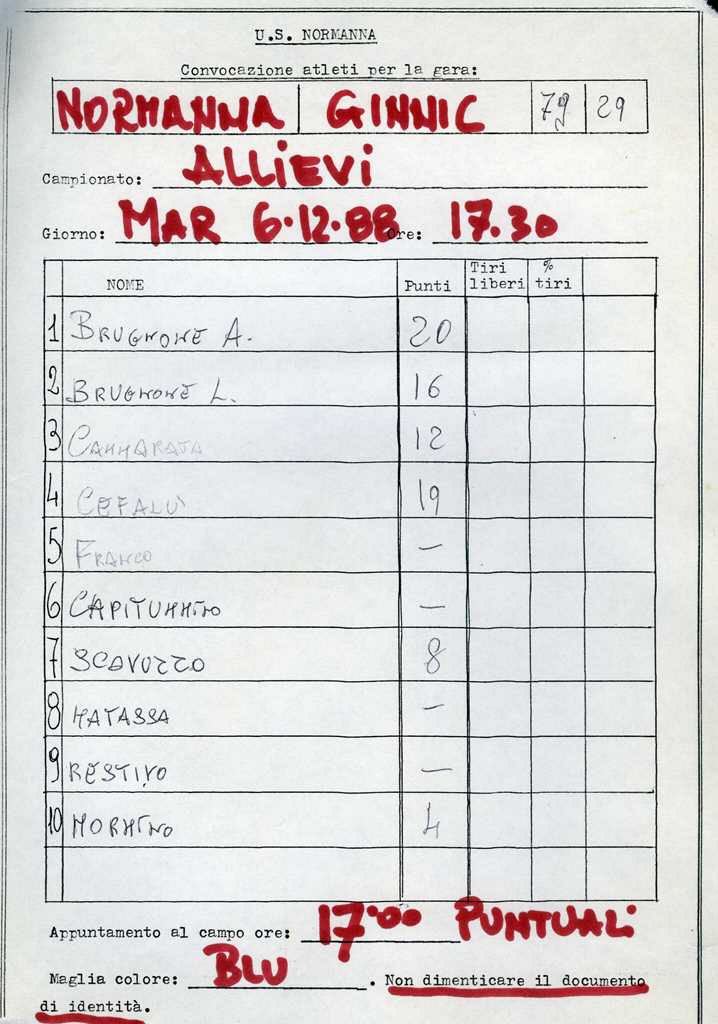 U.S. NORMANNA
Convocazione atleti per la gara:
NORMANNA GINNIC 79 29
Campionato: ALLIEVI
Giorno: MAR 6.12.88 Ore: 17.30
NOME Punti Tiri liberi % tiri
1 BRUGNONE A. 20
2 BRUGNONE L. 16
3 CAMMARATA 12
4 CEFALU' 19
5 FRANCO —
6 CAPITUMMINO —
7 SCAVUZZO 8
8 MATASSA —
9 RESTIVO —
10 MORMINO 4
Appuntamento al campo ore: 17.00 PUNTUALI
Maglia colore: BLU. Non dimenticare il documento
di identità.